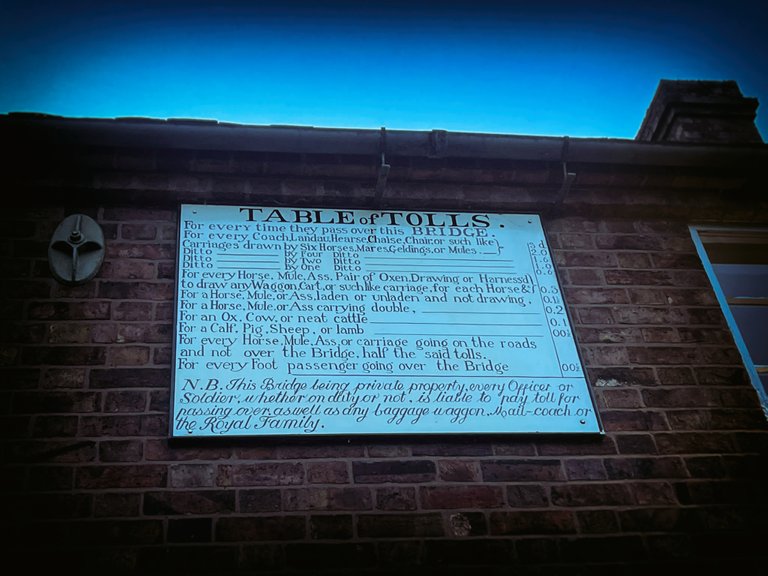 TABLE of TOLLS.
For every time they pass over this BRIDGE.
For every Coach, Landau, Hearse, Chaise, Chair, or such like
Carriages drawn by Six Horses, Mares, Geldings, or Mules.
Ditto by Four Ditto
Ditto by Two Ditto
Ditto by One Ditto
For every Horse, Mule, Ass, Pair of Oxen, Drawing or Harnessd
to draw any Waggon, Cart, or such like carriage, for each Horse &c 0.3
For a Horse, Mule, or Ass, laden or unladen and not drawing, 0.1½
For a Horse, Mule, or Ass carrying double, 0.2
For an Ox, Cow, or neat cattle 0.1
For a Calf, Pig, Sheep, or lamb 00½
For every Horse, Mule, Ass, or carriage going on the roads
and not over the Bridge, half the said tolls.
For every Foot passenger going over the Bridge 00½
N.B. This Bridge being private property, every Officer or
Soldier, whether on duty or not, is liable to pay toll for
passing over, as well as any baggage waggon, Mail-coach or
the Royal Family.